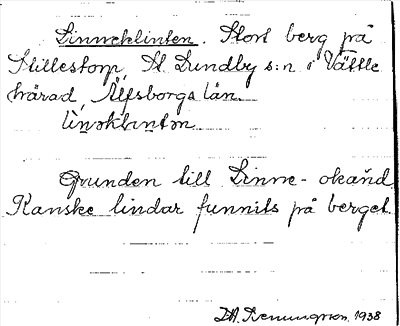 Linneklinten. Stort berg på
Stillestorp, St. Lundby s:n i Vättle
härad, Älfsborgs län.
linəklintən
Grunden till Linne- okänd.
Kanske lindar funnits på berget.
1938